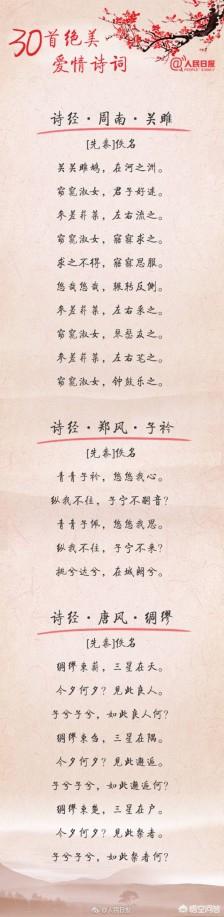 30首绝美
爱情诗词
@人民日报
诗经·周南·关雎
[先秦]佚名
关关雎鸠，在河之洲。
窈窕淑女，君子好逑。
参差荇菜，左右流之。
窈窕淑女，寤寐求之。
求之不得，寤寐思服。
悠哉悠哉，辗转反侧。
参差荇菜，左右采之。
窈窕淑女，琴瑟友之。
参差荇菜，左右芼之。
窈窕淑女，钟鼓乐之。
诗经·郑风·子衿
[先秦]佚名
青青子衿，悠悠我心。
纵我不往，子宁不嗣音？
青青子佩，悠悠我思。
纵我不往，子宁不来？
挑兮达兮，在城阙兮。
诗经·唐风·绸缪
[先秦]佚名
绸缪束薪，三星在天。
今夕何夕？见此良人。
子兮子兮，如此良人何？
绸缪束刍，三星在隅。
今夕何夕？见此邂逅。
子兮子兮，如此邂逅何？
绸缪束楚，三星在户。
今夕何夕？见此粲者。
子兮子兮，如此粲者何？
@人民日报
悟空问答